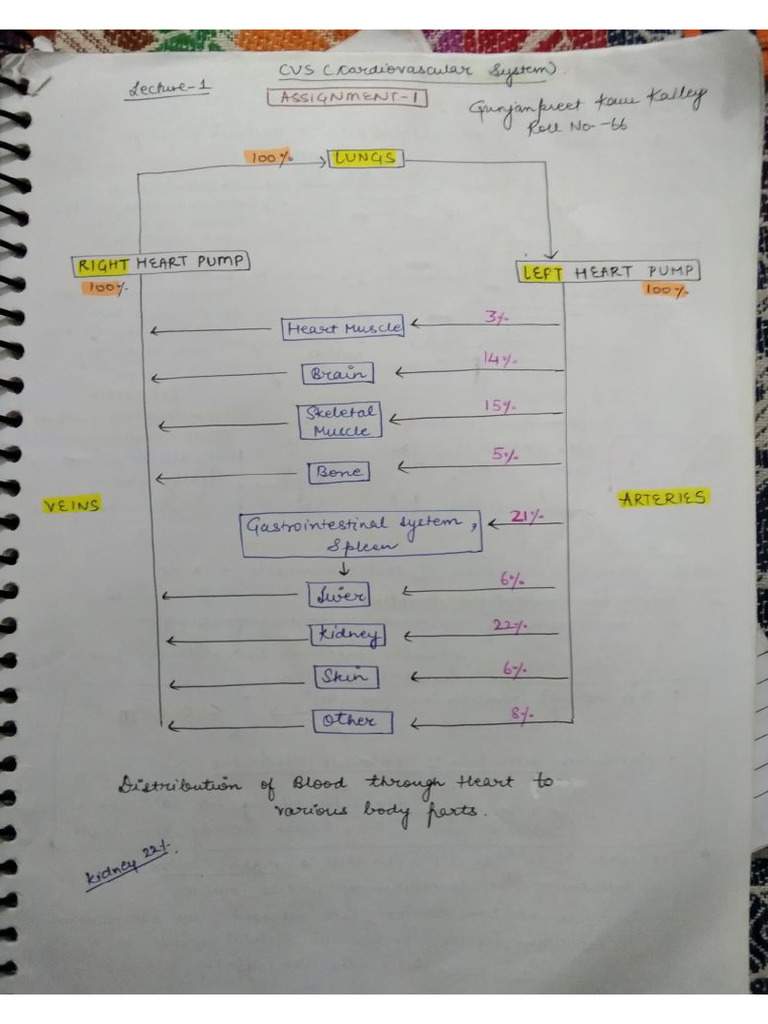 CVS (Cardiovascular System)
Lecture-1
ASSIGNMENT-1
Gunjanpreet Kaur Kalley
Roll No-66
100% LUNGS
RIGHT HEART PUMP
100%
LEFT HEART PUMP
100%
Heart Muscle 3%
Brain 14%
Skeletal
Muscle 15%
Bone 5%
VEINS
ARTERIES
Gastrointestinal system, 21%
Spleen
Liver 6%
Kidney 22%
Skin 6%
Other 8%
Distribution of Blood through Heart to
various body parts.
Kidney 22%.